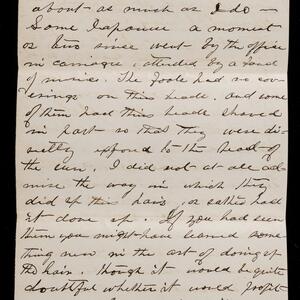 about as much as I do —
Some Japanese a moment
or two since went by the office
in carriages, attended by a band
of music. The fools had no cov-
erings on their heads, and some
of them had their heads shaved
in part so that they were di-
rectly exposed to the heat of
the sun. I did not at all ad-
mire the way in which they
did up their hair, or rather had
it done up. If you had seen
them you might have learned some-
thing new in the art of doing up
the hair, though it would be quite
doubtful whether it would profit